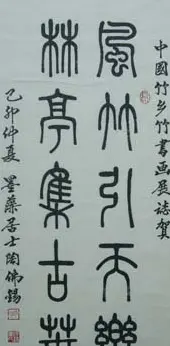 中國竹乡竹書画展誌贺
風竹引天樂
林亭集古華
乙卯仲夏 墨藥居士陶佛錫